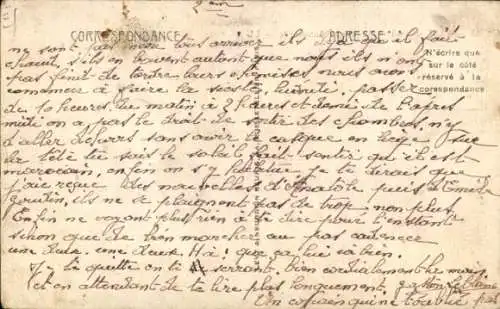 2em
CORRESPONDANCE
ADRESSE
N'écrire que
sur le côté
réservé à la
correspondance
ne sont pas tous arrivés ils y a que il fait
chaud, s'ils en boivent autant que nous ils n'ont
pas finit de tordre leurs chemises nous avons
commencé à faire la sieste, passer
de 10 heures du matin à 2 heures et demi de l'après
midi on a pas le droit de sortir des chambres, ny
d'aller dehors sans avoir le casque en liège sur
la tête tu sais le soleil fait sentir qu'il est
marocain, enfin on s'y habitue je te dirais que
j'ai reçue des nouvelles d'Anatole puis d'Emile
ils ne se plaignent pas de trop non plus
Enfin ne voyant plus rien à te dire pour l'instant
sinon que de bien marcher au pas cadencé
une deux. une deux. Ha! que ça lui va bien.
Je te quitte en te serrant bien cordialement la main
et en attendant de te lire plus longuement, Gaston Leblanc
Un copain qui ne t'oublie pas